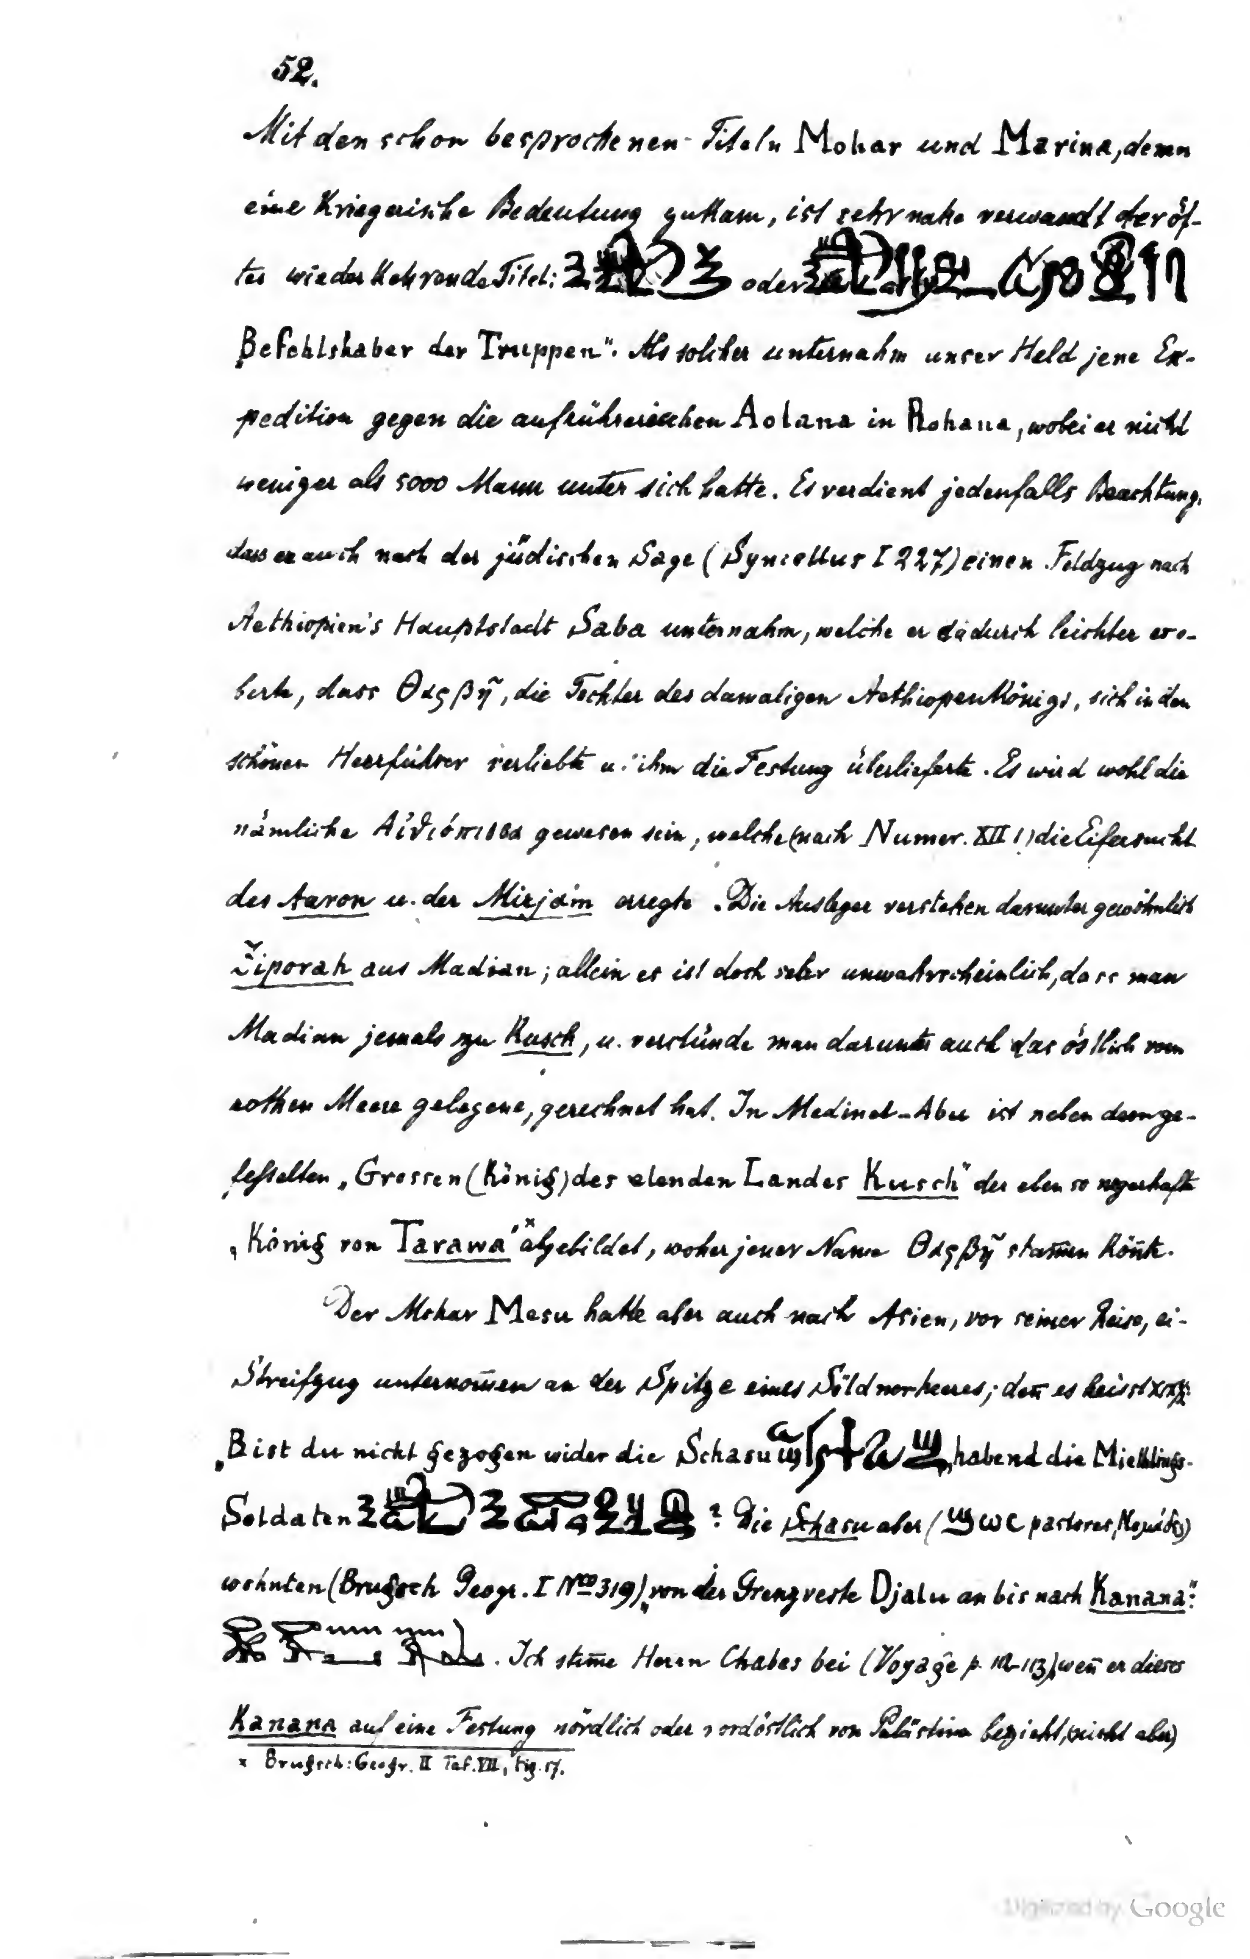 52.
Mit den schon besprochenen Titeln Mohar und Marina, denen
eine Kriegerische Bedeutung zukam, ist sehr nahe verwandt der öf-
ter wiederkehrende Titel: oder
„Befehlshaber der Truppen". Als solcher unternahm unser Held jene Ex-
pedition gegen die aufrührerischen Aolana in Rohana, wobei er nicht
weniger als 5000 Mann unter sich hatte. Es verdient jedenfalls Beachtung,
dass er auch nach der jüdischen Sage (Syncellus I 227) einen Feldzug nach
Aethiopien's Hauptstadt Saba unternahm, welche er dadurch leichter ero-
berte, dass Θαςβη̃, die Tochter des damaligen Aethiopenkönigs, sich in den
schönen Heerführer verliebte u. ihm die Festung überlieferte. Es wird wohl die
nämliche Αἰθιόπισσα gewesen sein, welche (nach Numer. XII 1) die Eifersucht
des Aaron u. der Mirjam erregte. Die Ausleger verstehen darunter gewöhnlich
Ziporah aus Madian; allein es ist doch sehr unwahrscheinlich, dass man
Madian jemals zu Kusch, u. verstünde man darunter auch das östlich vom
rothen Meere gelegene, gerechnet hat. In Medinet-Abu ist neben dem ge-
fesselten „Grossen (König) des elenden Landes Kusch" der eben so negerhafte
„König von Tarawa"x abgebildet, woher jener Name Θαςβη̃ stam̄en kön̄te.
Der Mohar Mesu hatte aber auch nach Asien, vor seiner Reise, ei-
Streifzug unternom̄en an der Spitze eines Söldnerheeres; den̄ es heisst
„Bist du nicht gezogen wider die Schasu habend die Miethlings-
Soldaten ? Die Schasu aber (ϣωс pastores, Νομάδες)
wohnten (Brugsch Geogr. I No 319) „von der Grenzveste Djalu an bis nach Kanana":
. Ich stim̄e Herrn Chabas bei (Voyage p. 112-113), wen̄ er dieses
Kanana auf eine Festung nördlich oder nordöstlich von Palästina bezieht, (nicht aber)
x Brugsch: Geogr. II Taf. VII, fig. 17.
Digitized by Google